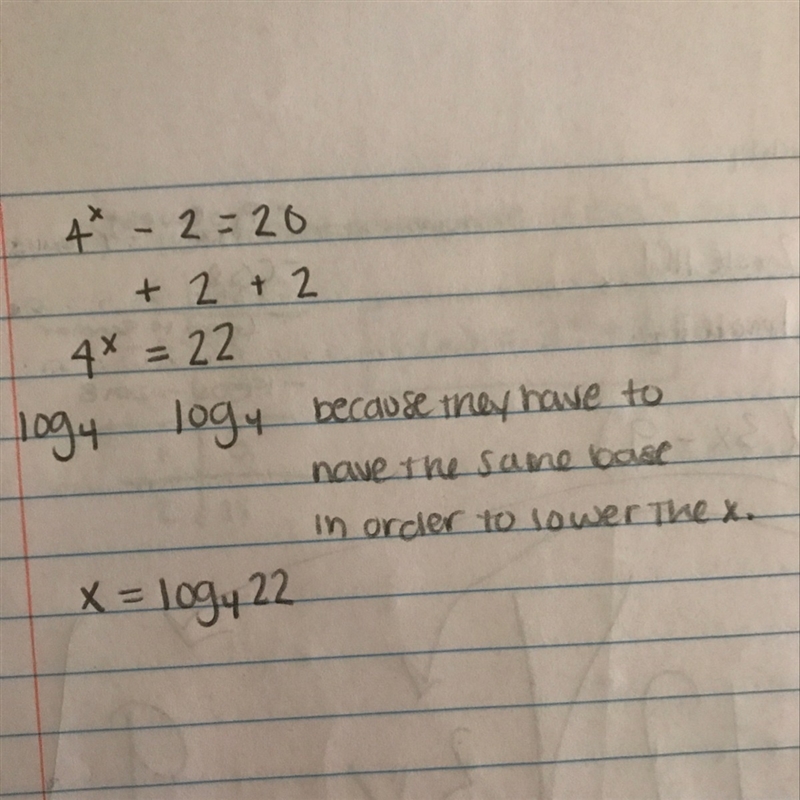 4ˣ - 2 = 20
+ 2 + 2
4ˣ = 22
log₄ log₄ because they have to
have the same base
in order to lower the x.
x = log₄22